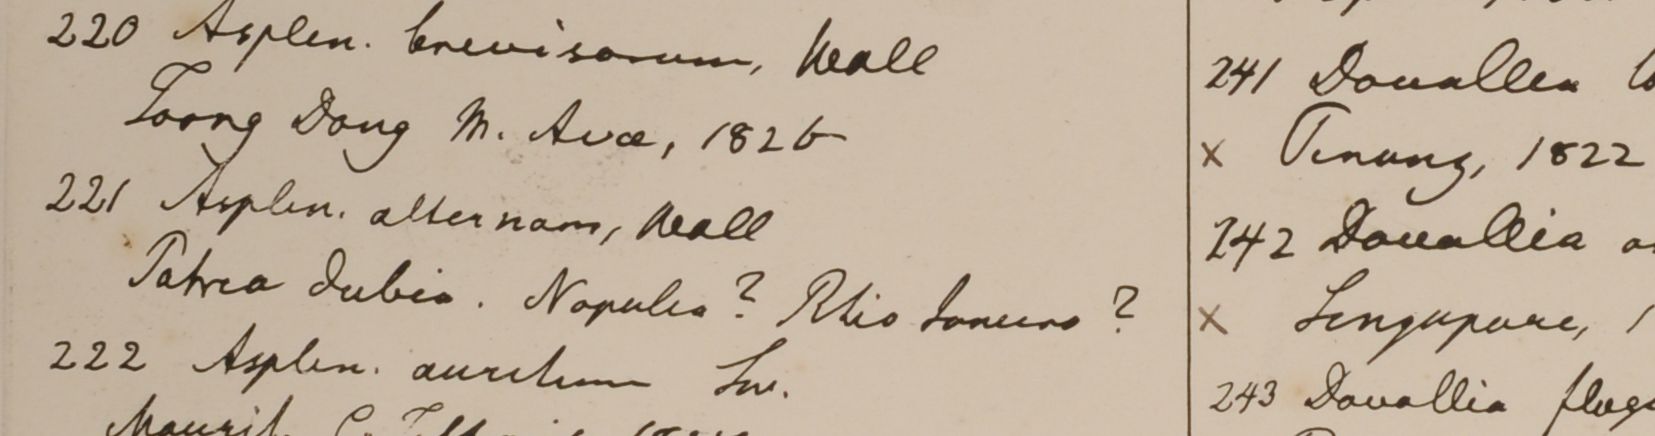 220 Asplen. brevisorum, Wall
Toong Dong M. Avæ, 1826
221 Asplen. alternans, Wall
Patria dubia. Napulia? Rhio Janeiro?
222 Asplen. auritum Sw.
Maurit.
241 Davallia
x Pinang, 1822
242 Davallia
x Singapure,
243 Davallia